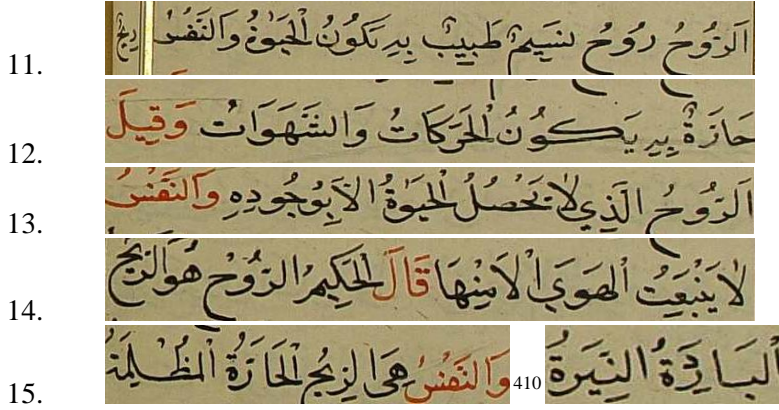 11. اَلرُّوحُ رُوحُ نسِيمٌ طَبِيبٌ بِهِ يَكُونُ الْحَيٰوةُ وَالنَّفْسُ رِيحٌ
12. حَارَةٌ بِهِ يَكُونُ الْحَرَكَاتُ وَالشَّهَوَاتُ وَقِيلَ
13. اَلرُّوحُ الَّذِي لَا تَحْصُلُ الْحَيٰوةُ اِلَّا بِوُجُودِهِ وَالنَّفْسُ
14. لَا يَنْبَعِثُ الْهَوَى اِلَّا مِنْهَا قَالَ الْحَكِيمُ الرُّوحُ هُوَ الرِّيحُ
15. اَلْبَارِدَةُ النَّيِّرَةُ 410 وَالنَّفْسُ هِيَ الرِّيحُ الْحَارَّةُ الْمُظْلِمَةُ